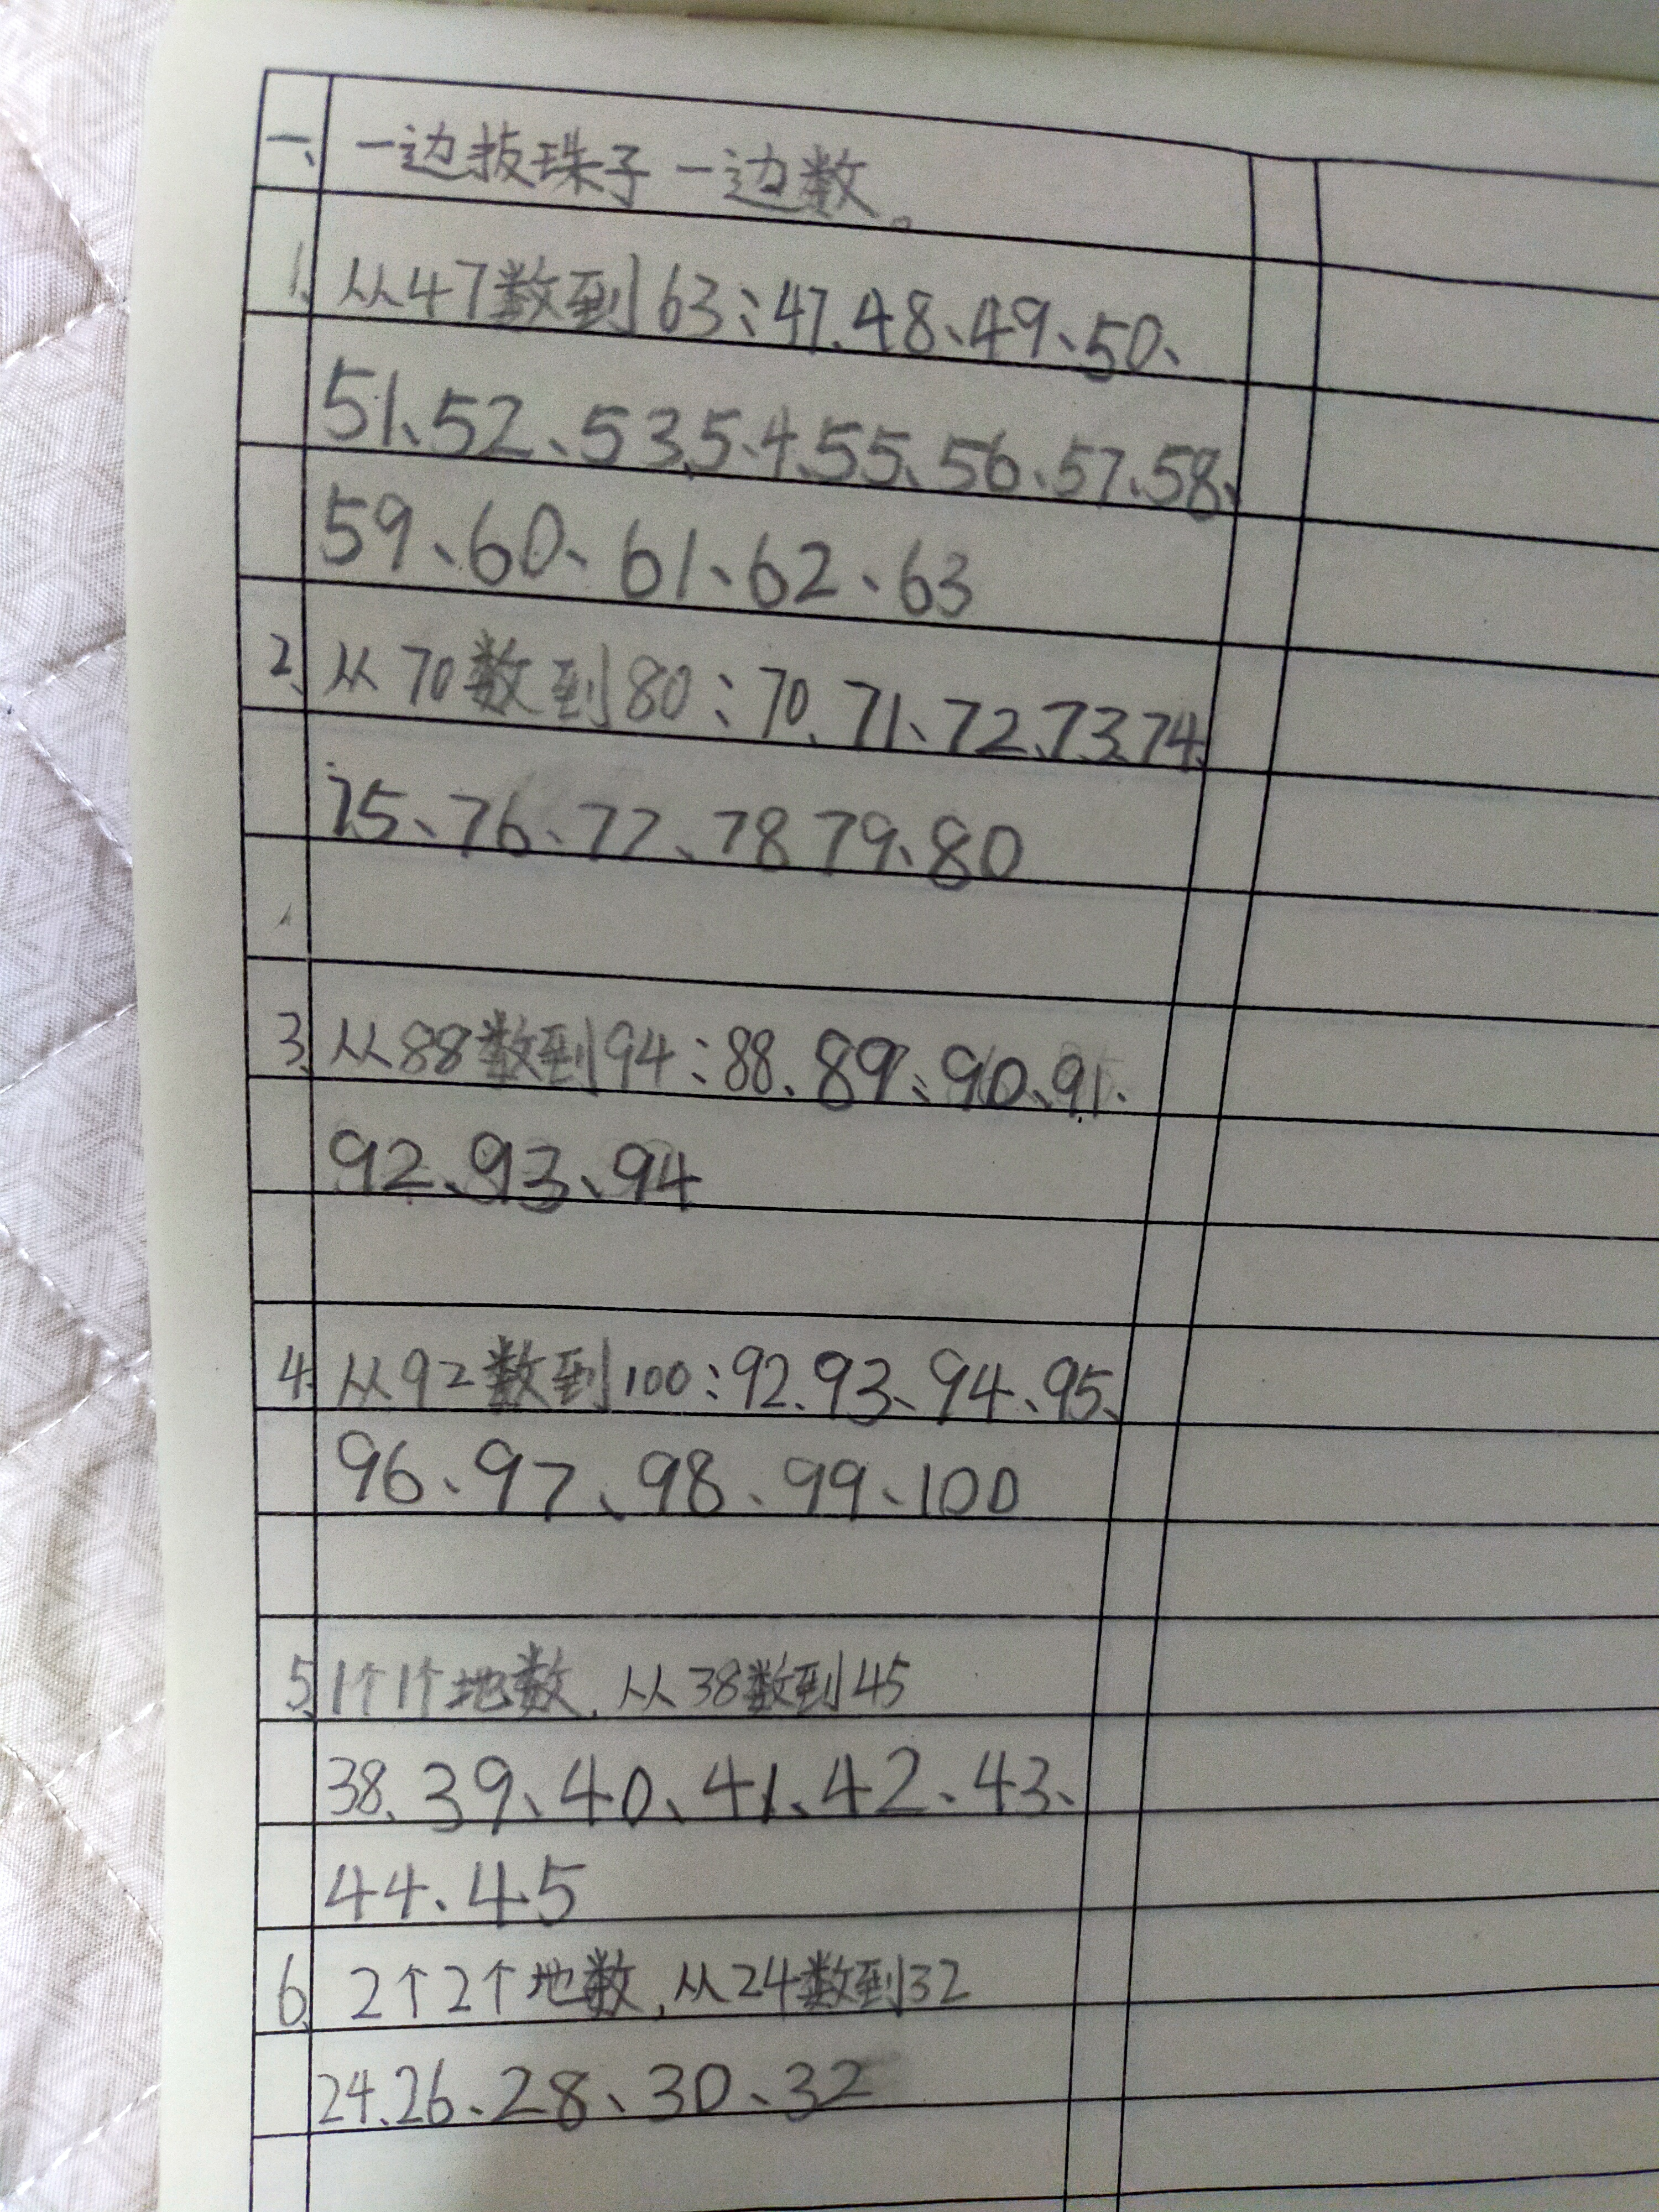 一、一边拔珠子一边数。
1、从47数到63：47、48、49、50、
51、52、53、5、4、55、56、57、58、
59、60、61、62、63
2、从70数到80：70、71、72、73、74、
75、76、77、78 79、80
3、从88数到94：88、89、90、91、
92、93、94
4、从92数到100：92、93、94、95、
96、97、98、99、100
5、1个1个地数，从38数到45
38、39、40、41、42、43、
44、45
6、2个2个地数，从24数到32
24、26、28、30、32